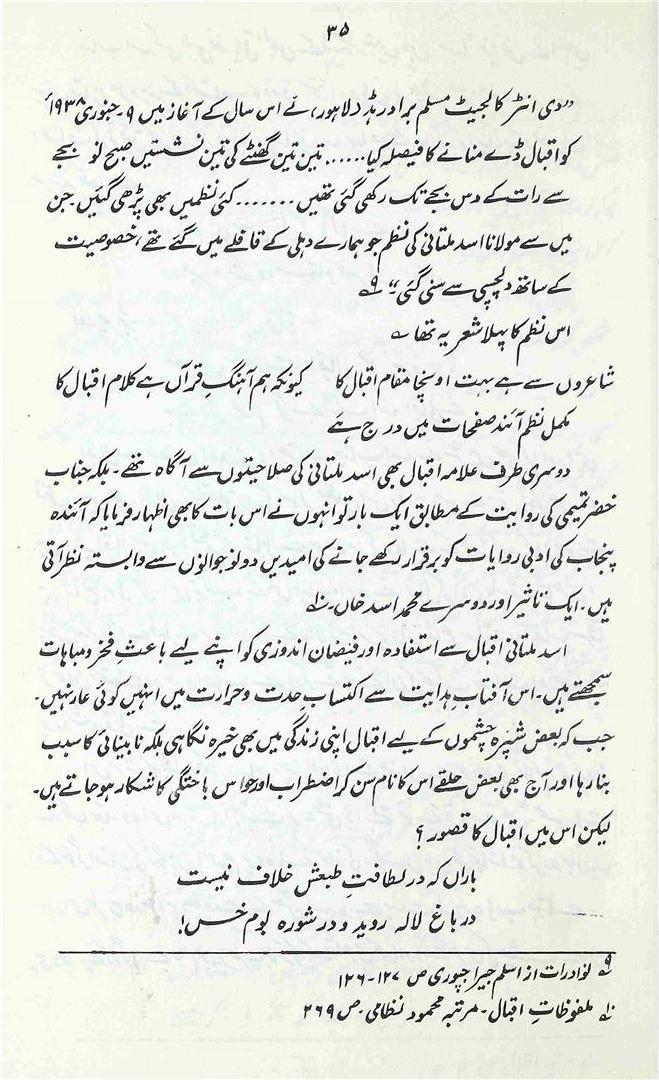 ۳۵
”دی انٹر کالجیٹ مسلم برادر ہڈ (لاہور) نے اس سال کے آغاز میں ۹۔جنوری ۱۹۳۸ء
کو اقبال ڈے منانے کا فیصلہ کیا...... تین تین گھنٹے کی تین نشستیں صبح نو بجے
سے رات کے دس بجے تک رکھی گئی تھیں ....... کئی نظمیں بھی پڑھی گئیں۔ جن
میں سے مولانا اسد ملتانی کی نظم جو ہمارے دہلی کے قافلے میں گئے تھے، خصوصیت
کے ساتھ دلچسپی سے سنی گئی“ ۹؎
اس نظم کا پہلا شعر یہ تھا ؎
شاعروں سے ہے بہت اونچا مقام اقبال کا کیونکہ ہم آہنگِ قرآں ہے کلام اقبال کا
مکمل نظم آئندہ صفحات میں درج ہے
دوسری طرف علامہ اقبال بھی اسد ملتانی کی صلاحیتوں سے آگاہ تھے۔ بلکہ جناب
خضر تمیمی کی روایت کے مطابق ایک بار تو انہوں نے اس بات کا بھی اظہار فرمایا کہ آئندہ
پنجاب کی ادبی روایات کو برقرار رکھے جانے کی امیدیں دو نوجوانوں سے وابستہ نظر آتی
ہیں۔ ایک تاثیر اور دوسرے محمد اسد خاں۔ ۱۰؎
اسد ملتانی اقبال سے استفادہ اور فیضان اندوزی کو اپنے لیے باعثِ فخر و مباہات
سمجھتے ہیں۔ اس آفتابِ ہدایت سے اکتساب حدت و حرارت میں انہیں کوئی عار نہیں۔
جب کہ بعض شپرہ چشموں کے لیے اقبال اپنی زندگی میں بھی خیرہ نگاہی بلکہ نابینائی کا سبب
بنا رہا اور آج بھی بعض حلقے اس کا نام سن کر اضطراب اور حواس باختگی کا شکار ہو جاتے ہیں۔
لیکن اس میں اقبال کا قصور؟
باراں کہ در لطافتِ طبعش خلاف نیست
در باغ لالہ روید و در شورہ بوم خس!
۹؎ نوادرات از اسلم جیراجپوری ص ۱۲۷-۱۲۶
۱۰؎ ملفوظاتِ اقبال۔ مرتبہ محمود نظامی۔ ص ۲۶۹